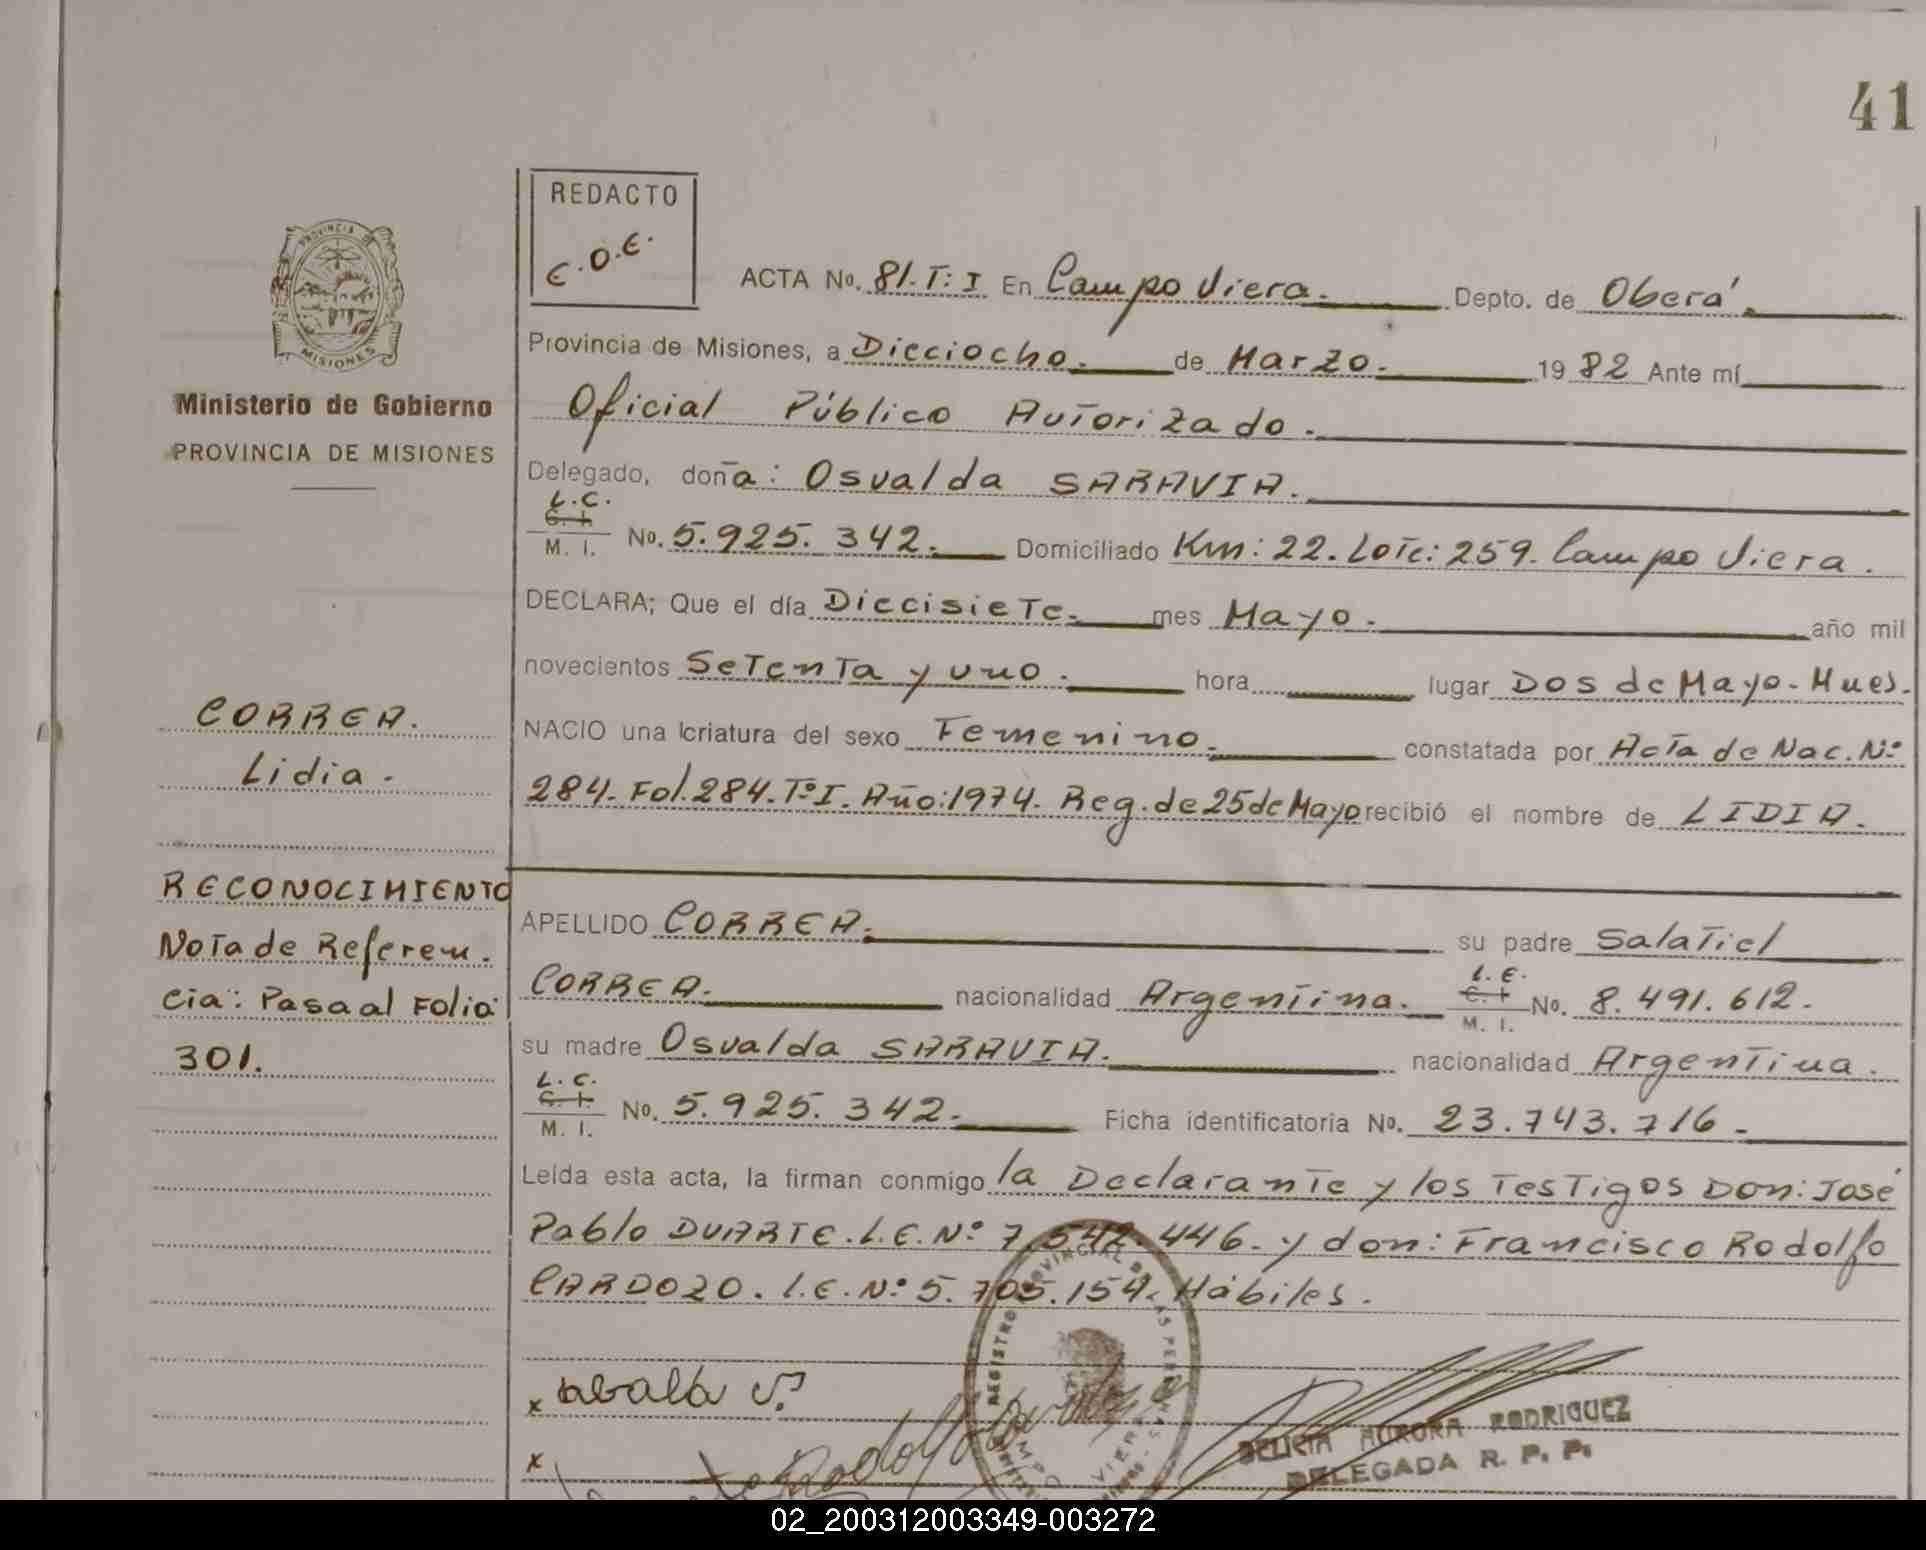 41
REDACTO
C.O.E.
PROVINCIA DE
MISIONES
Ministerio de Gobierno
PROVINCIA DE MISIONES
CORREA.
Lidia.
RECONOCIMIENTO
Nota de Referen.
cia: Pasa al Folio:
301.
ACTA No. 81. T: I En Campo Viera. Depto. de Oberá
Provincia de Misiones, a Dieciocho. de Marzo. 1982 Ante mí
Oficial Público Autorizado.
Delegado, doña: Osvalda SARAVIA.
L.C.
C. I.
M. I.
No. 5.925.342. Domiciliado Km: 22. Lote: 259. Campo Viera.
DECLARA; Que el día Diecisiete. mes Mayo. año mil
novecientos Setenta y uno. hora lugar Dos de Mayo. Mnes.
NACIO una criatura del sexo Femenino. constatada por Acta de Nac. Nº
284. Fol. 284. Tº I. Año: 1974. Reg. de 25 de Mayo recibió el nombre de LIDIA.
APELLIDO CORREA. su padre Salatiel
CORREA. nacionalidad Argentina. L.E. C. I. M. I. No. 8.491.612.
su madre Osvalda SARAVIA. nacionalidad Argentina.
L.C.
C. I.
M. I.
No. 5.925.342. Ficha identificatoria No. 23.743.716.
Leída esta acta, la firman conmigo la Declarante y los Testigos Don: José
Pablo DUARTE. L.E. Nº 7.542.446. y don: Francisco Rodolfo
CARDOZO. L.E. Nº 5.705.154. Hábiles.
REGISTRO PROVINCIAL DE LAS PERSONAS
CAMPO VIERA
DELICIA AURORA RODRIGUEZ
DELEGADA R. P. P.
02_200312003349-003272